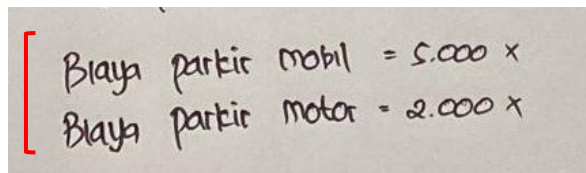 Biaya parkir mobil = 5.000 x
Biaya parkir motor = 2.000 x